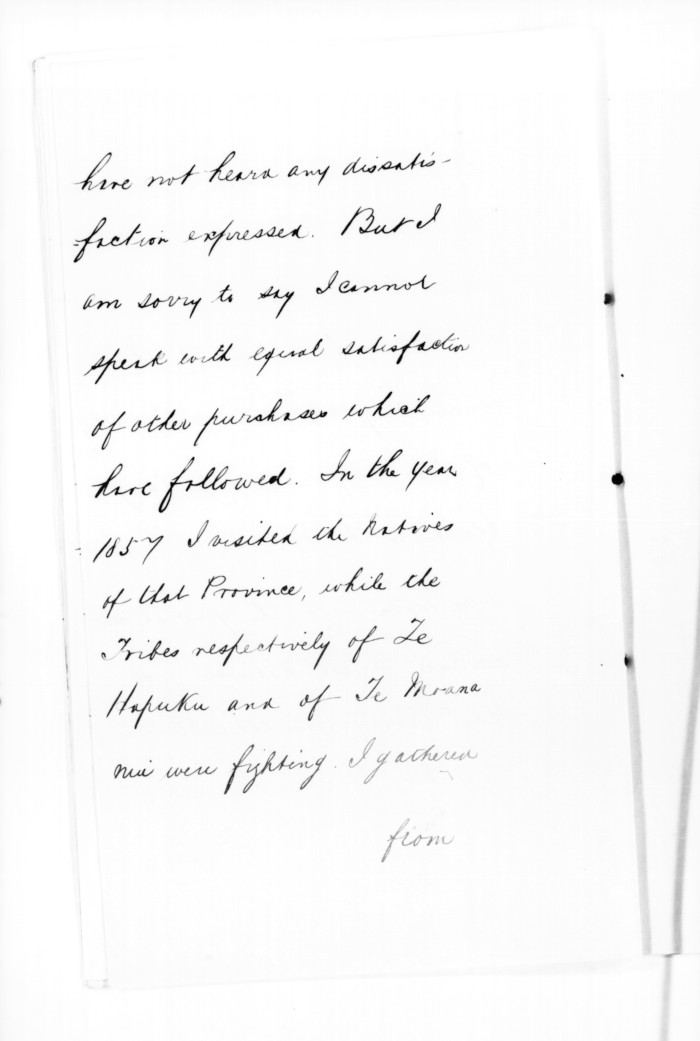 have not heard any dissatis-
-faction expressed. But I
am sorry to say I cannot
speak with equal satisfaction
of other purchases which
have followed. In the year
1857 I visited the Natives
of that Province, while the
Tribes respectively of Te
Hapuku and of Te Moana
nui were fighting. I gathered
from